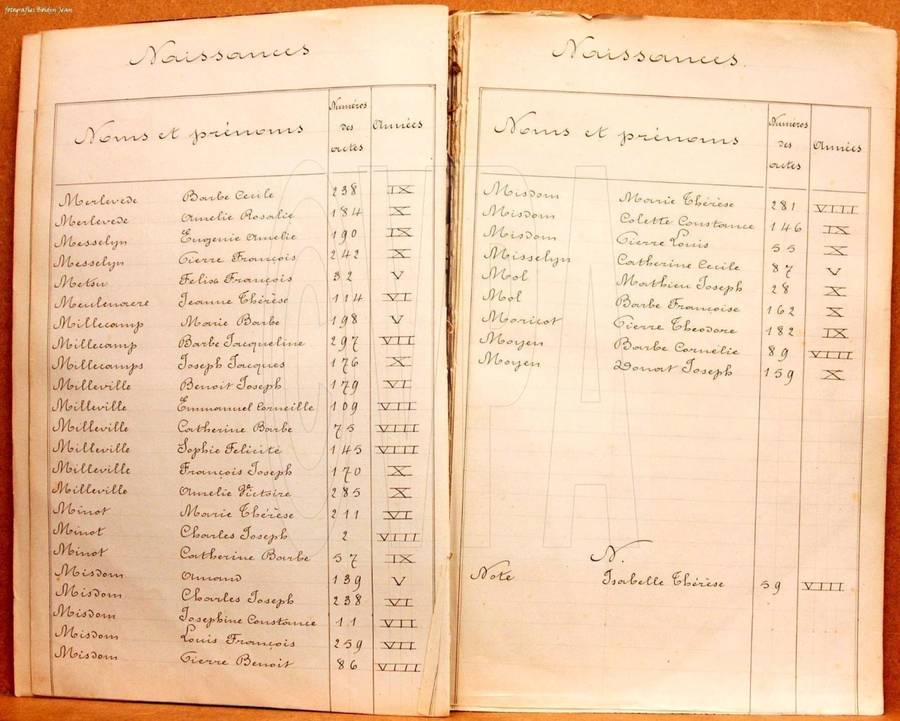 fotografias Boldin Jean
Naissances
Noms et prénoms Numéros des actes Années
Merlevede Barbe Cecile 238 IX
Merlevede Amelie Rosalie 184 X
Messelyn Eugenie Amelie 190 IX
Messelyn Pierre François 242 X
Metsu Felix François 32 V
Meulenaere Jeanne Thérèse 114 VI
Millecamp Marie Barbe 198 V
Millecamp Barbe Jacqueline 297 VII
Millecamps Joseph Jacques 176 X
Milleville Benoit Joseph 179 VI
Milleville Emmanuel Corneille 109 VII
Milleville Catherine Barbe 75 VIII
Milleville Sophie Felicité 145 VIII
Milleville François Joseph 170 X
Milleville Amelie Victoire 285 X
Minot Marie Thérèse 211 VI
Minot Charles Joseph 2 VIII
Minot Catherine Barbe 57 IX
Misdom Amand 139 V
Misdom Charles Joseph 238 VI
Misdom Josephine Constance 11 VII
Misdom Louis François 259 VII
Misdom Pierre Benoit 86 VIII
Naissances.
Noms et prénoms Numéros des actes Années
Misdom Marie Thérèse 281 VIII
Misdom Colette Constance 146 IX
Misdom Pierre Louis 55 X
Misselyn Catherine Cecile 87 V
Mol Mathieu Joseph 28 X
Mol Barbe Françoise 162 X
Moricot Pierre Theodore 182 IX
Moyen Barbe Cornélie 89 VIII
Moyen Donat Joseph 159 X
N.
Note Isabelle Thérèse 59 VIII